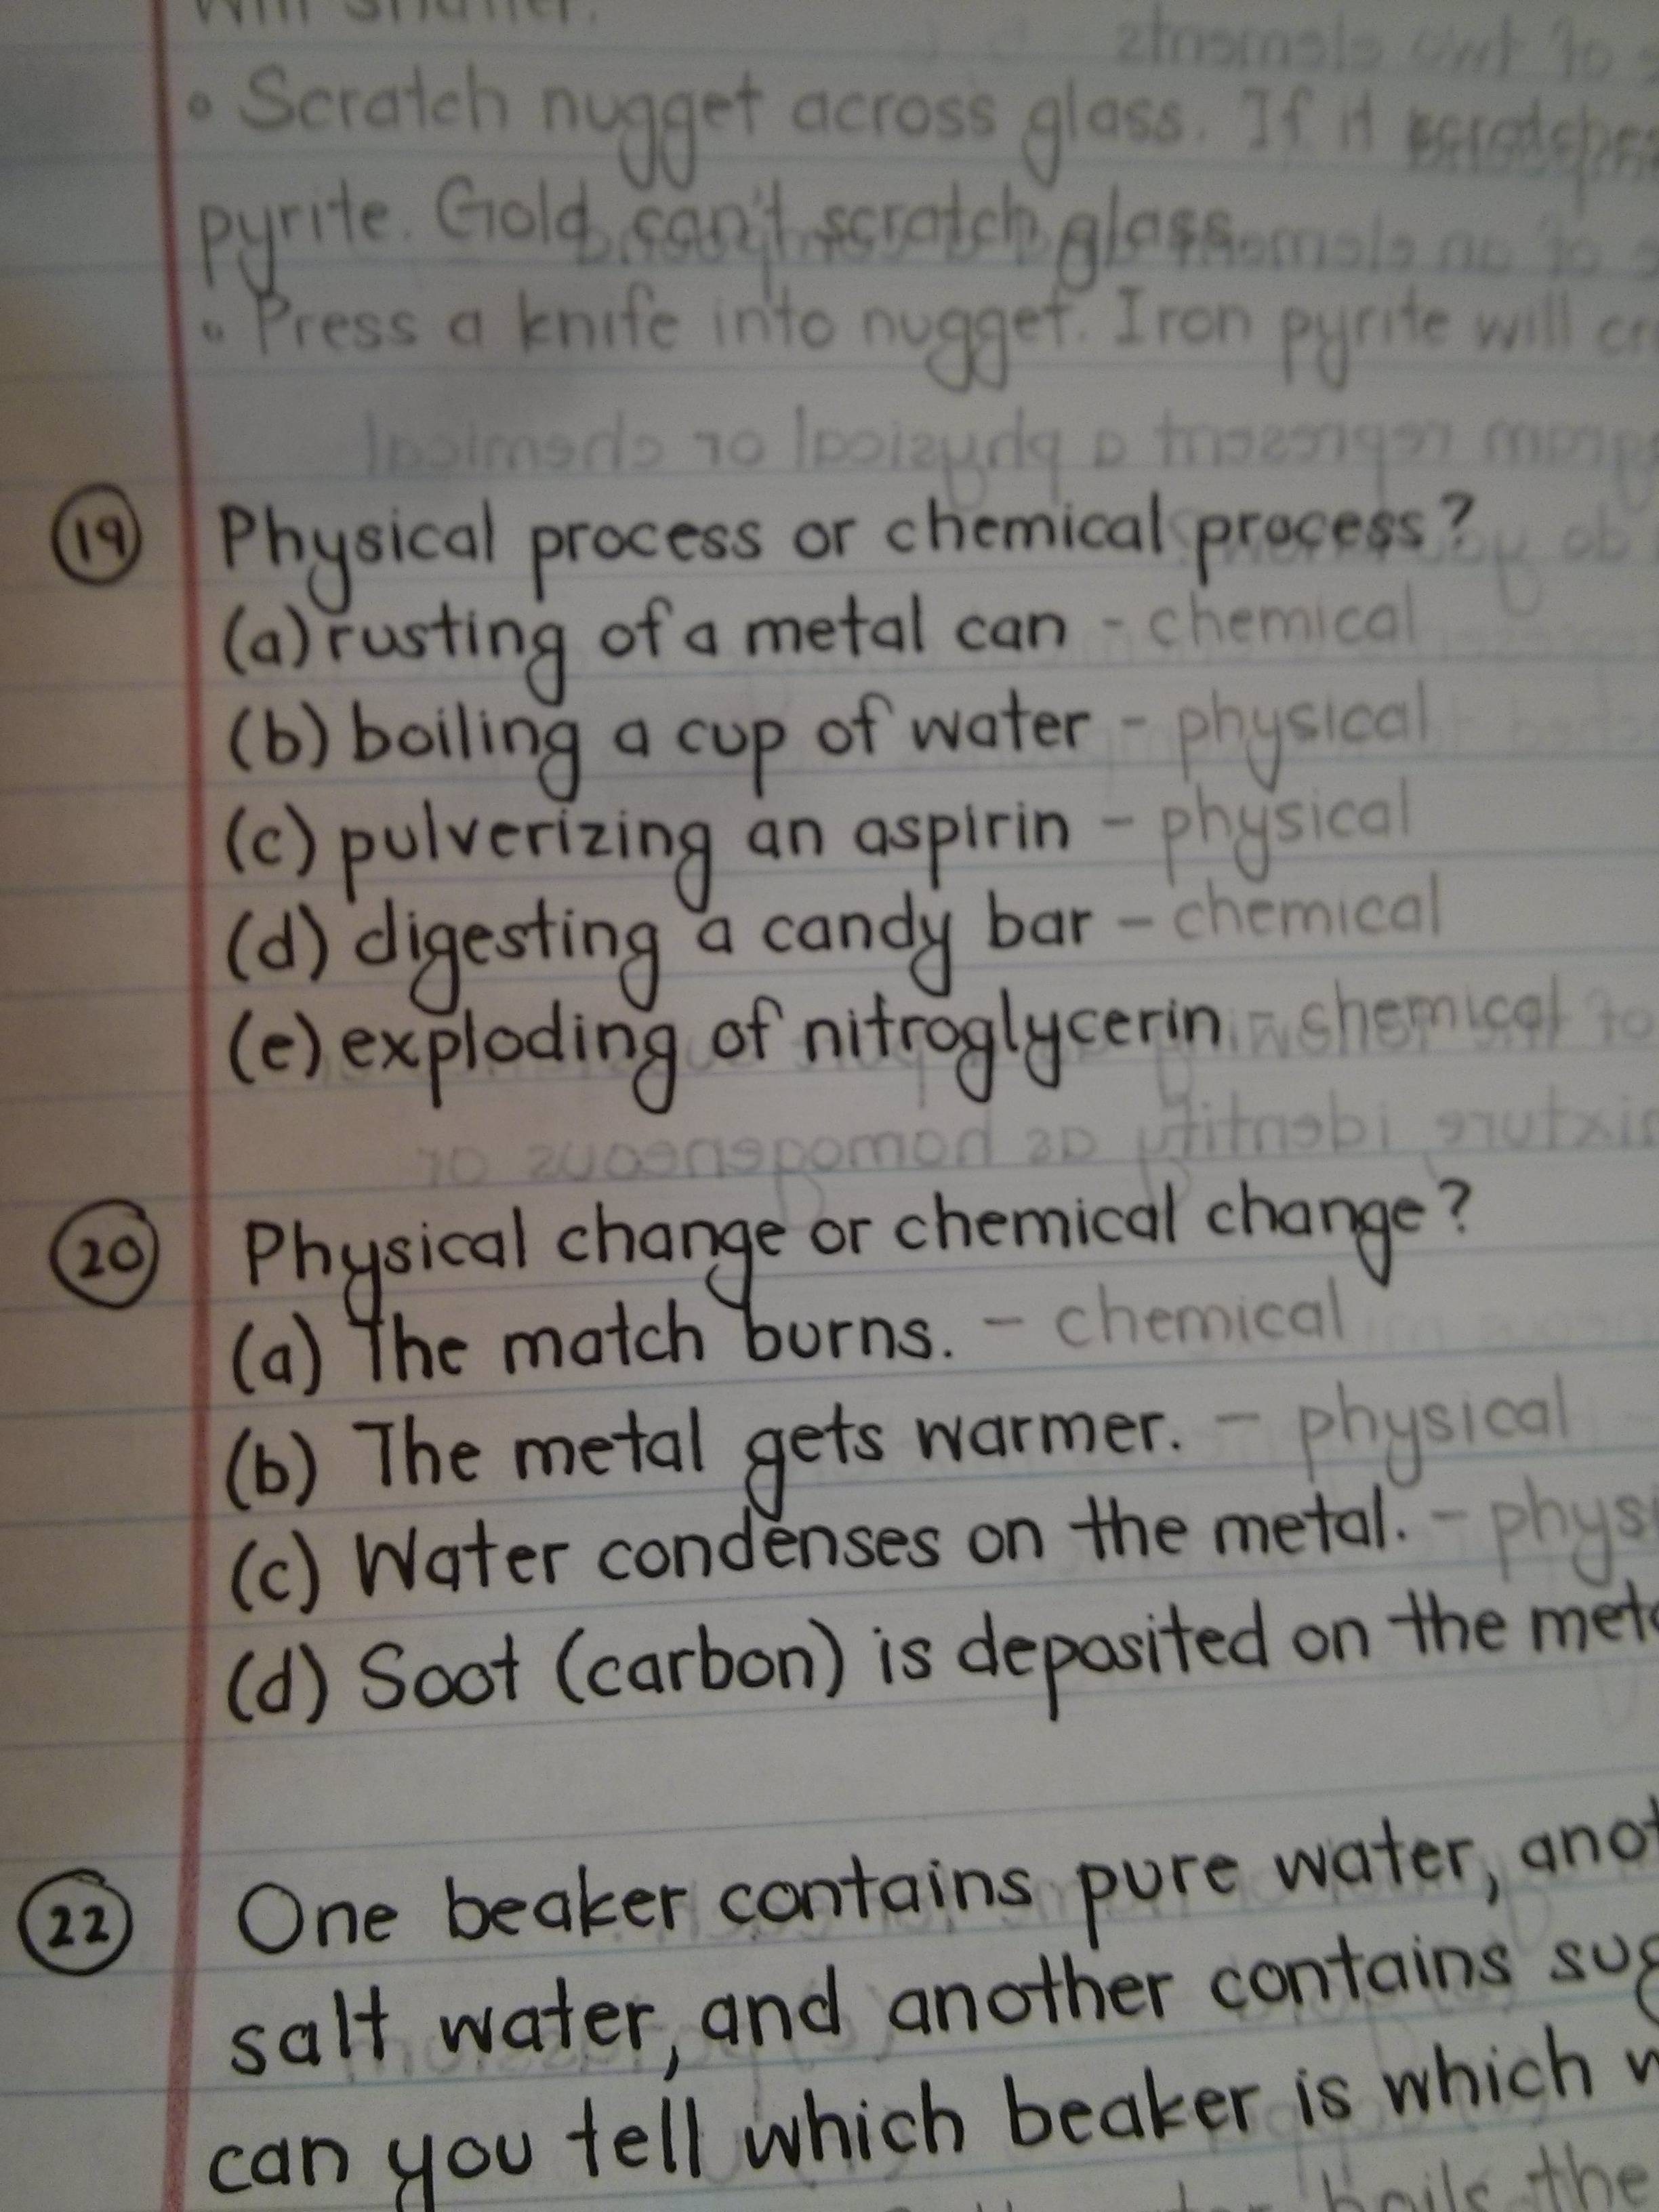 • Scratch nugget across glass. If it scratches
pyrite. Gold can't scratch glass.
• Press a knife into nugget. Iron pyrite will
19 Physical process or chemical process?
(a) rusting of a metal can - chemical
(b) boiling a cup of water - physical
(c) pulverizing an aspirin - physical
(d) digesting a candy bar - chemical
(e) exploding of nitroglycerin - chemical
20 Physical change or chemical change?
(a) The match burns. - chemical
(b) The metal gets warmer. - physical
(c) Water condenses on the metal. -
(d) Soot (carbon) is deposited on the
22 One beaker contains pure water,
salt water, and another contains
can you tell which beaker is which
boils the